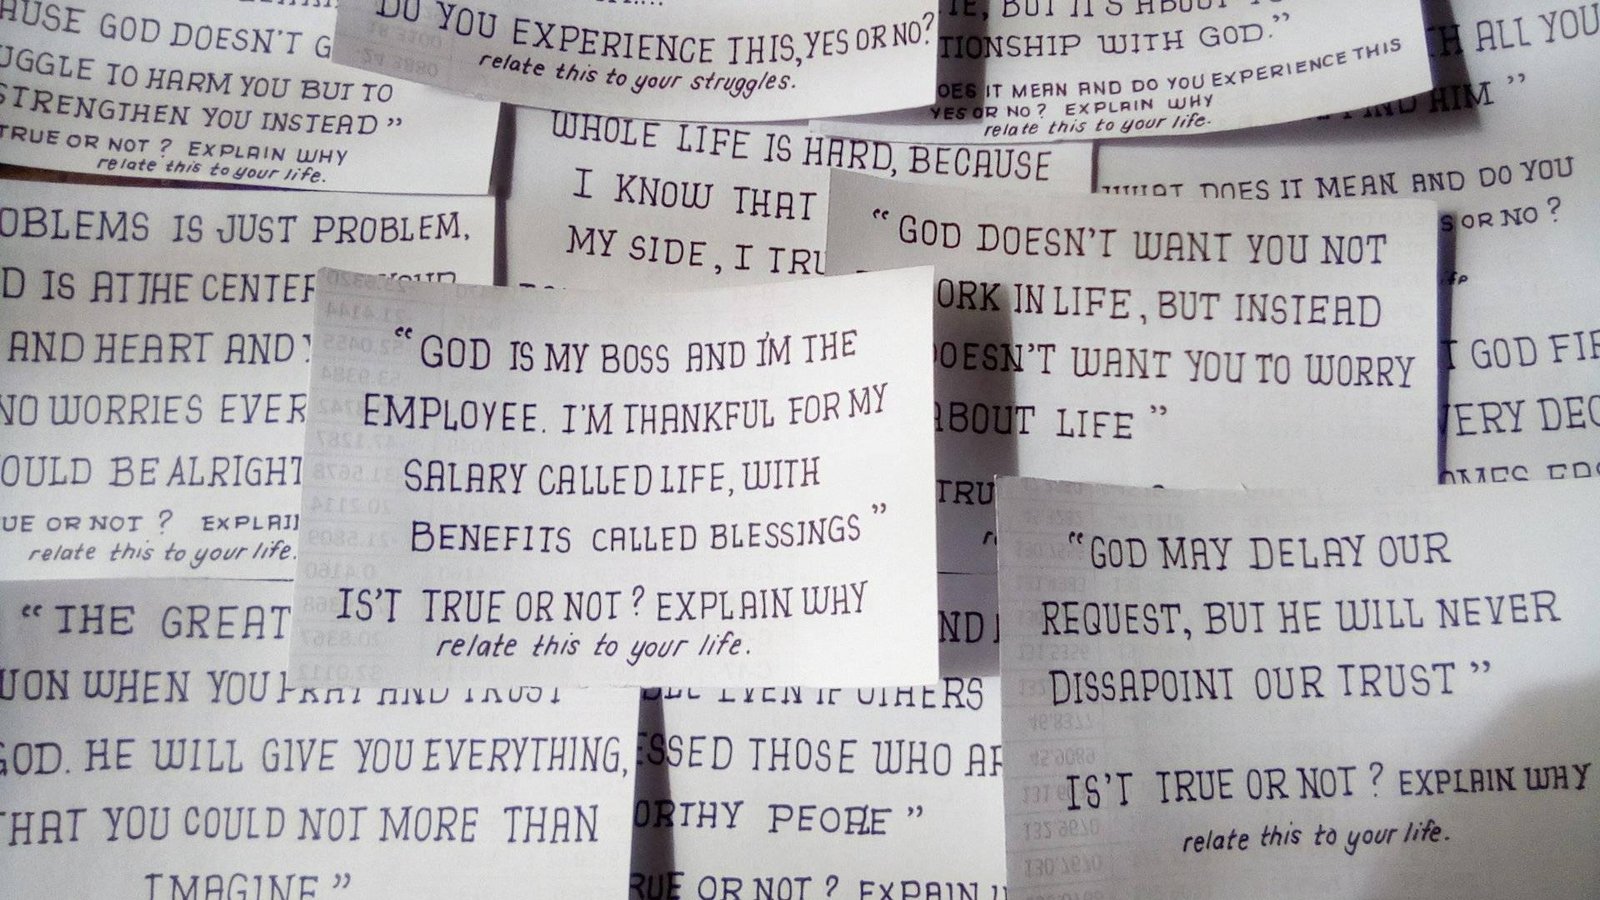 AUSE GOD DOESN'T G
UGGLE TO HARM YOU BUT TO
STRENGTHEN YOU INSTEAD"
TRUE OR NOT? EXPLAIN WHY
relate this to your life.
DO YOU EXPERIENCE THIS, YES OR NO?
relate this to your struggles.
TE, BUT IT'S ABOUT
TIONSHIP WITH GOD."
OES IT MEAN AND DO YOU EXPERIENCE THIS
YES OR NO? EXPLAIN WHY
relate this to your life.
H ALL YOU
HIM"
WHAT DOES IT MEAN AND DO YOU
S OR NO?
T GOD FIR
VERY DEC
WHOLE LIFE IS HARD, BECAUSE
I KNOW THAT
MY SIDE, I TRU
OBLEMS IS JUST PROBLEM,
D IS AT THE CENTER YOUR
AND HEART AND Y
NO WORRIES EVER
OULD BE ALRIGHT
UE OR NOT? EXPLAI
relate this to your life.
"GOD DOESN'T WANT YOU NOT
ORK IN LIFE, BUT INSTEAD
OESN'T WANT YOU TO WORRY
ABOUT LIFE"
TRU
"GOD IS MY BOSS AND I'M THE
EMPLOYEE. I'M THANKFUL FOR MY
SALARY CALLED LIFE, WITH
BENEFITS CALLED BLESSINGS"
IS'T TRUE OR NOT? EXPLAIN WHY
relate this to your life.
"GOD MAY DELAY OUR
REQUEST, BUT HE WILL NEVER
DISSAPOINT OUR TRUST"
IS'T TRUE OR NOT? EXPLAIN WHY
relate this to your life.
"THE GREAT
ION WHEN YOU PRAY AND TRUST
GOD. HE WILL GIVE YOU EVERYTHING,
THAT YOU COULD NOT MORE THAN
IMAGINE"
ND
EVEN IF OTHERS
ESSED THOSE WHO AR
ORTHY PEOPLE"
RUE OR NOT? EXPAIN